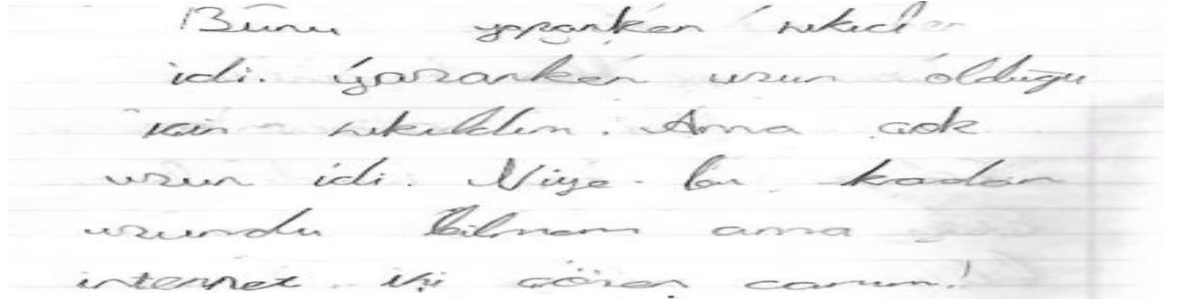 Bunu yaparken
idi. yazarken uzun olduğu
için sıkıldım. Ama çok
uzun idi. Niye bu kadar
uzundu bilmem ama
internet iyi canım!